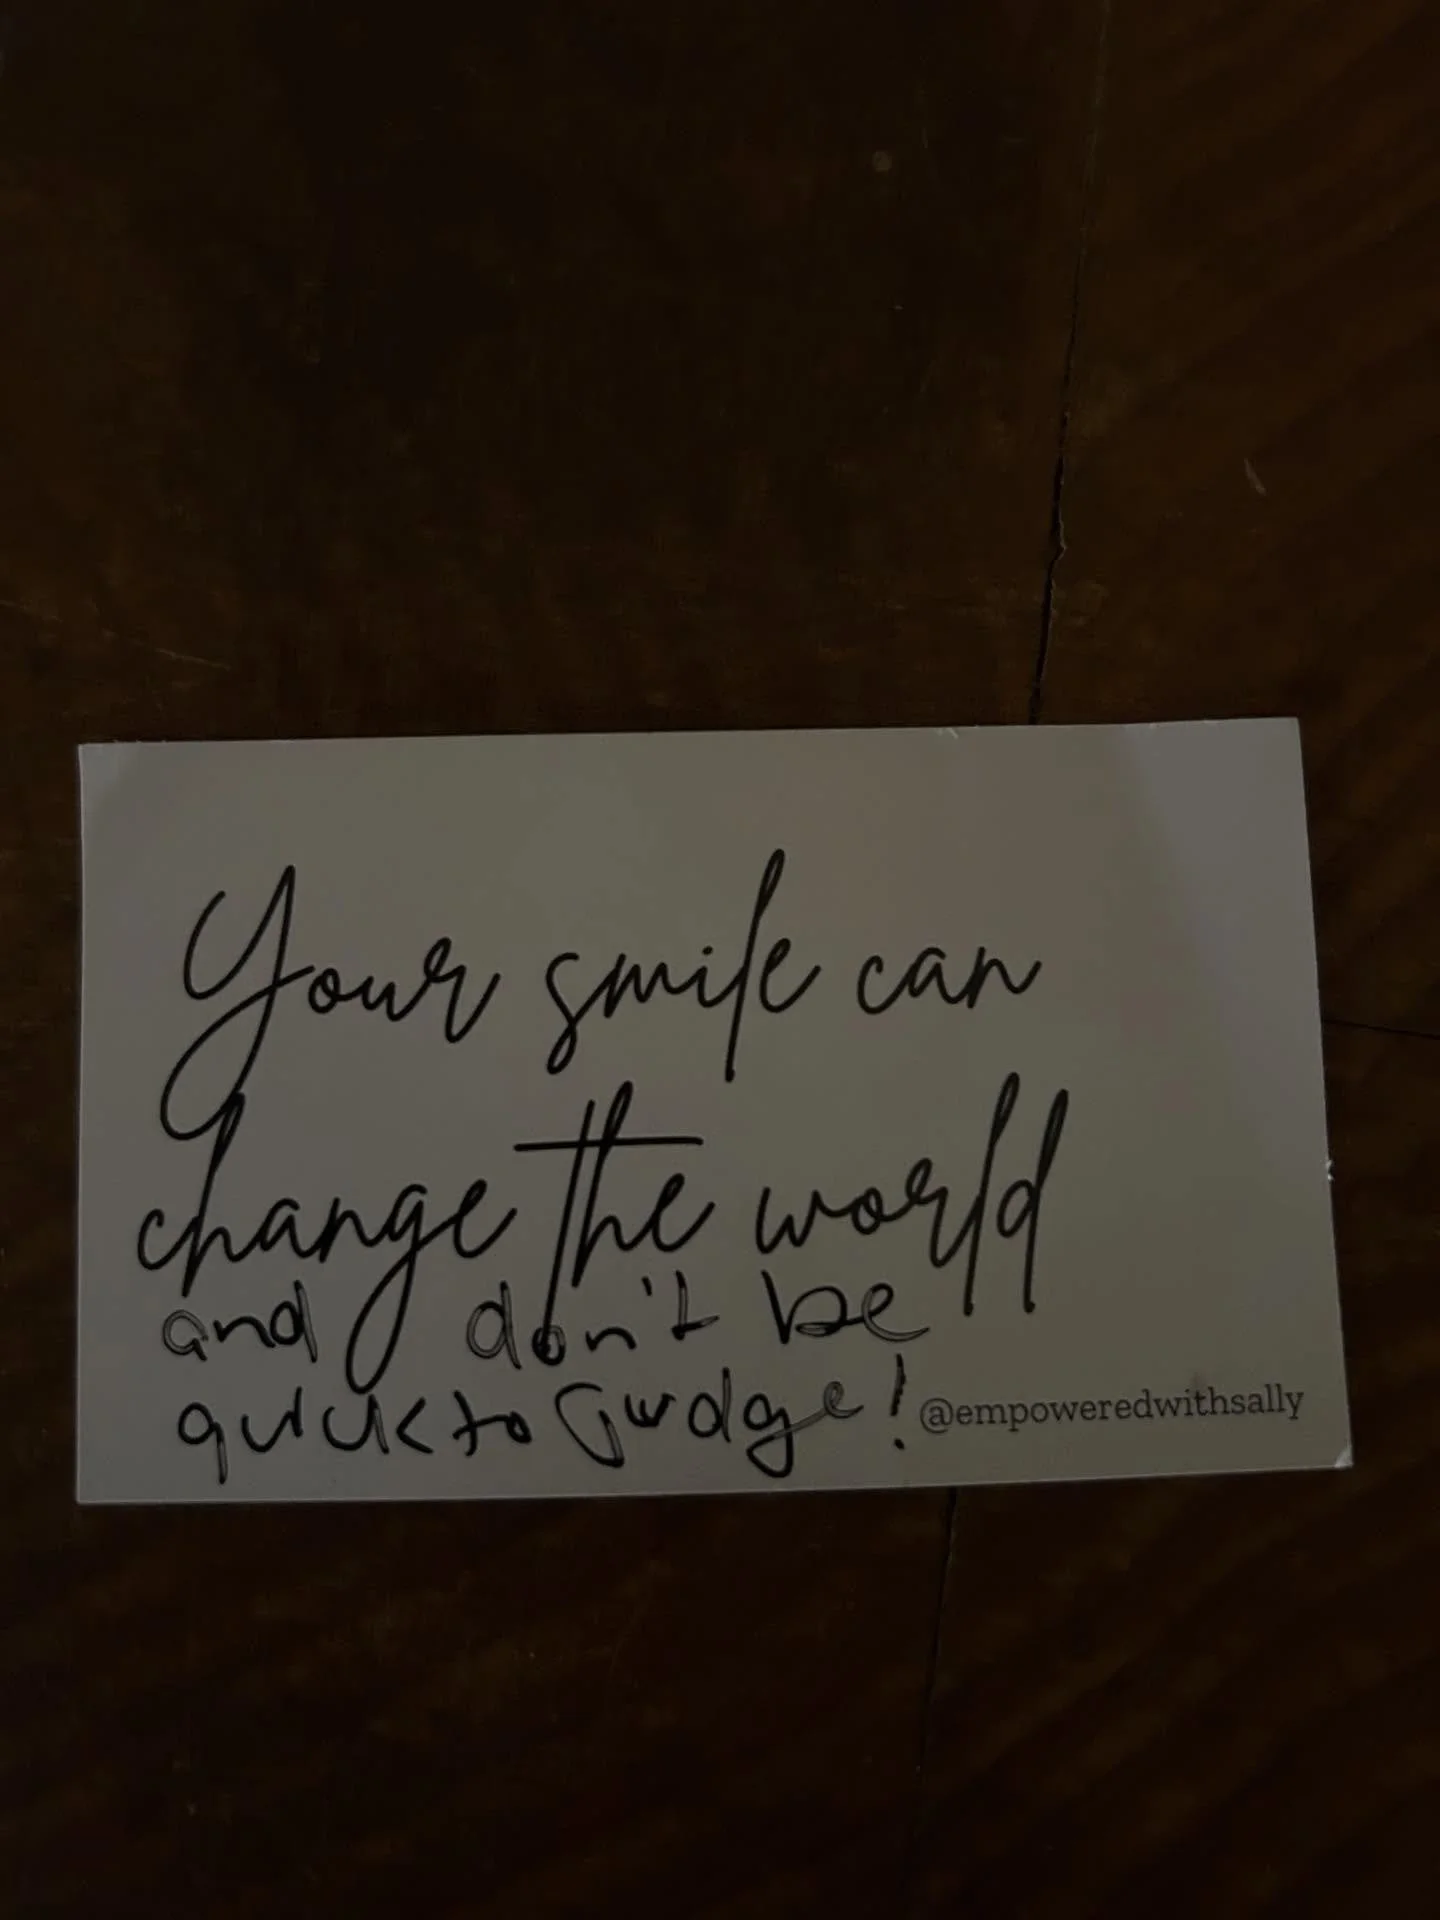 Your smile can
change the world
and don't be
quick to judge!
@empoweredwithsally